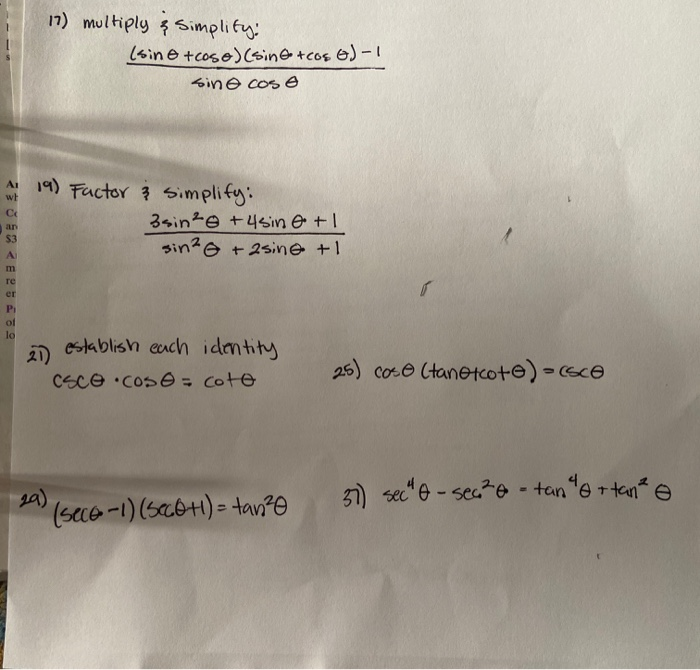 17) multiply & simplify:
(sinθ + cosθ)(sinθ + cos θ) - 1
sinθ cos θ
19) Factor & simplify:
3sin²θ + 4sin θ + 1
sin²θ + 2sinθ + 1
21) establish each identity
cscθ · cosθ = cotθ
25) cosθ (tanθ+cotθ) = cscθ
29) (secθ - 1)(secθ+1) = tan²θ
37) sec⁴θ - sec²θ = tan⁴θ + tan²θ
s
wh
Co
an
$3
A
m
re
er
of
lo